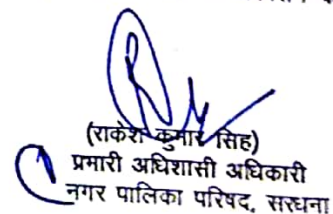 (राकेश कुमार सिंह)
प्रभारी अधिशासी अधिकारी
नगर पालिका परिषद, सरधना